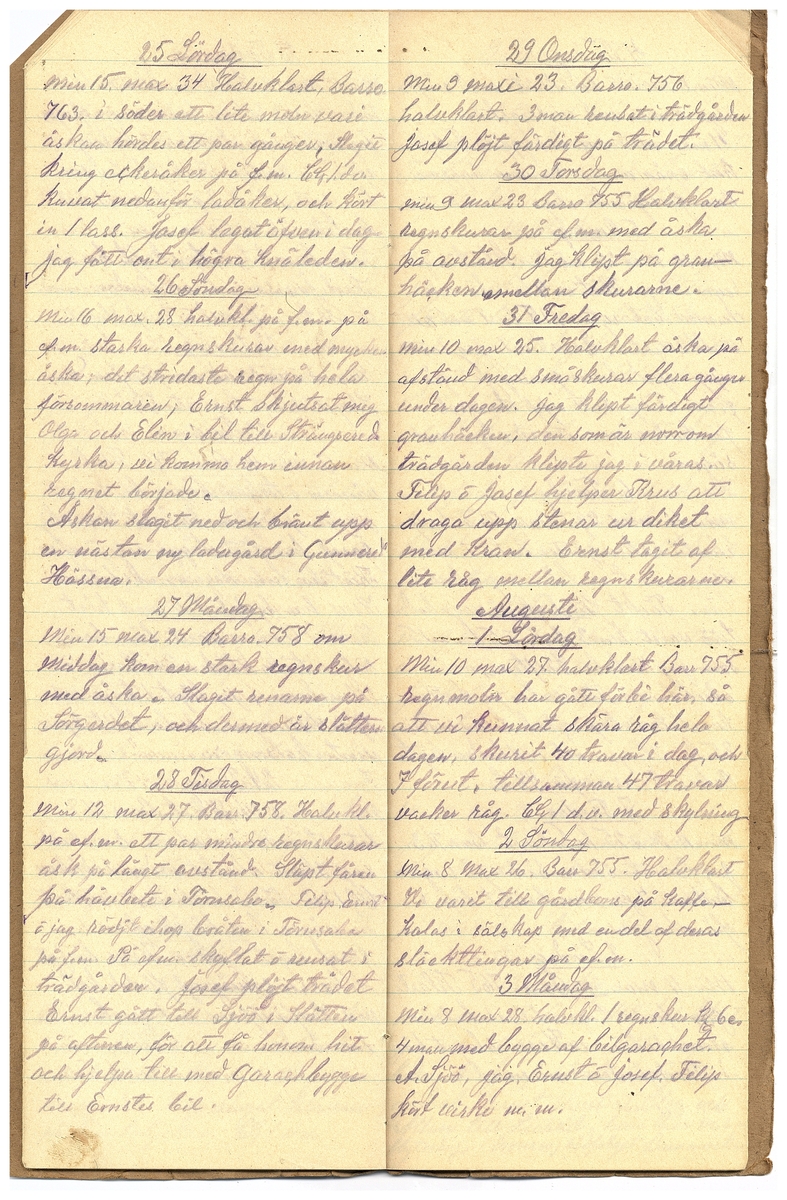 25 Lördag
Min 15. max 34 Halvklart, Barro
763. i söder ett lite moln vari
åskan hördes ett par gånger, Slagit
kring åkeråker på f.m. Eft. 1 d.v.
kuvat nedanför ladåker, och kört
in 1 lass. Josef legat äfven i dag
jag fått ont i högra knäleden.
26 Söndag
Min 16 max. 28 halvkl. på f.m. på
ef.m. starka regnskurar med mycken
åska; det stridaste regn på hela
försommaren; Ernst skjutsat mig
Olga och Elin i bil till Strängsereds
kyrka, vi kommo hem innan
regnet började.
Åskan slagit ned och bränt upp
en nästan ny ladugård i Gunnered
Hössna.
27 Måndag
Min 15 max 24 Barro. 758 om
middag kom en stark regnskur
med åska. Slagit renarna på
Törgerdet, och dermed är slåttern
gjord.
28 Tisdag
Min 12 max 27. Barr. 758. Halvkl.
på ef.m. ett par mindre regnskurar
åsk på långt avstånd. Släpt fåren
på håvbete i Törnsabo. Filip Ernst
o jag rödjt ihop bråten i Törnsabo
på f.m. På ef.m. skyflat o rensat i
trädgården. Josef plöjt trädet
Ernst gått till Sjöö i Slätten
på aftonen, för att få honom hit
och hjelpa till med Garachbygge
till Ernstes bil.
29 Onsdag
Min 9 maxi 23. Barro. 756
halvklart. 3 man rensat i trädgården
Josef plöjt färdigt på trädet.
30 Torsdag
Min 9 max 23 Barro 755 Halvklart
regnskurar på ef.m. med åska
på avstånd. jag klipt på gran-
häcken emellan skurarne.
31 Fredag
Min 10 max 25. Halvklart åska på
afstånd med småskurar flera gånger
under dagen. jag klipt färdigt
granhäcken, den som är norr om
trädgården klipte jag i våras.
Filip o Josef hjelper Krus att
draga upp stenar ur diket
med Kran. Ernst tagit af
lite råg mellan regnskurarne.
Augusti
1 Lördag
Min 10 max 27. halvklart Barr 755
regnmoln har gått förbi här, så
att vi kunnat skära råg hela
dagen, skurit 40 travar i dag, och
7 förut, tillsamman 47 travar
vacker råg. Eft. 1 d.v. med skylning
2 Söndag
Min 8 Max 26. Barr 755. Halvklart
Vi varit till gårdbons på kaffe-
kalas i sälskap med en del af deras
släcktingar på ef.m.
3 Måndag
Min 8 max 28. halvkl. 1 regnskur kl 6 em
4 man med bygge af bilgarachet.
A. Sjöö, jag, Ernst o Josef. Filip
kört virke m.m.